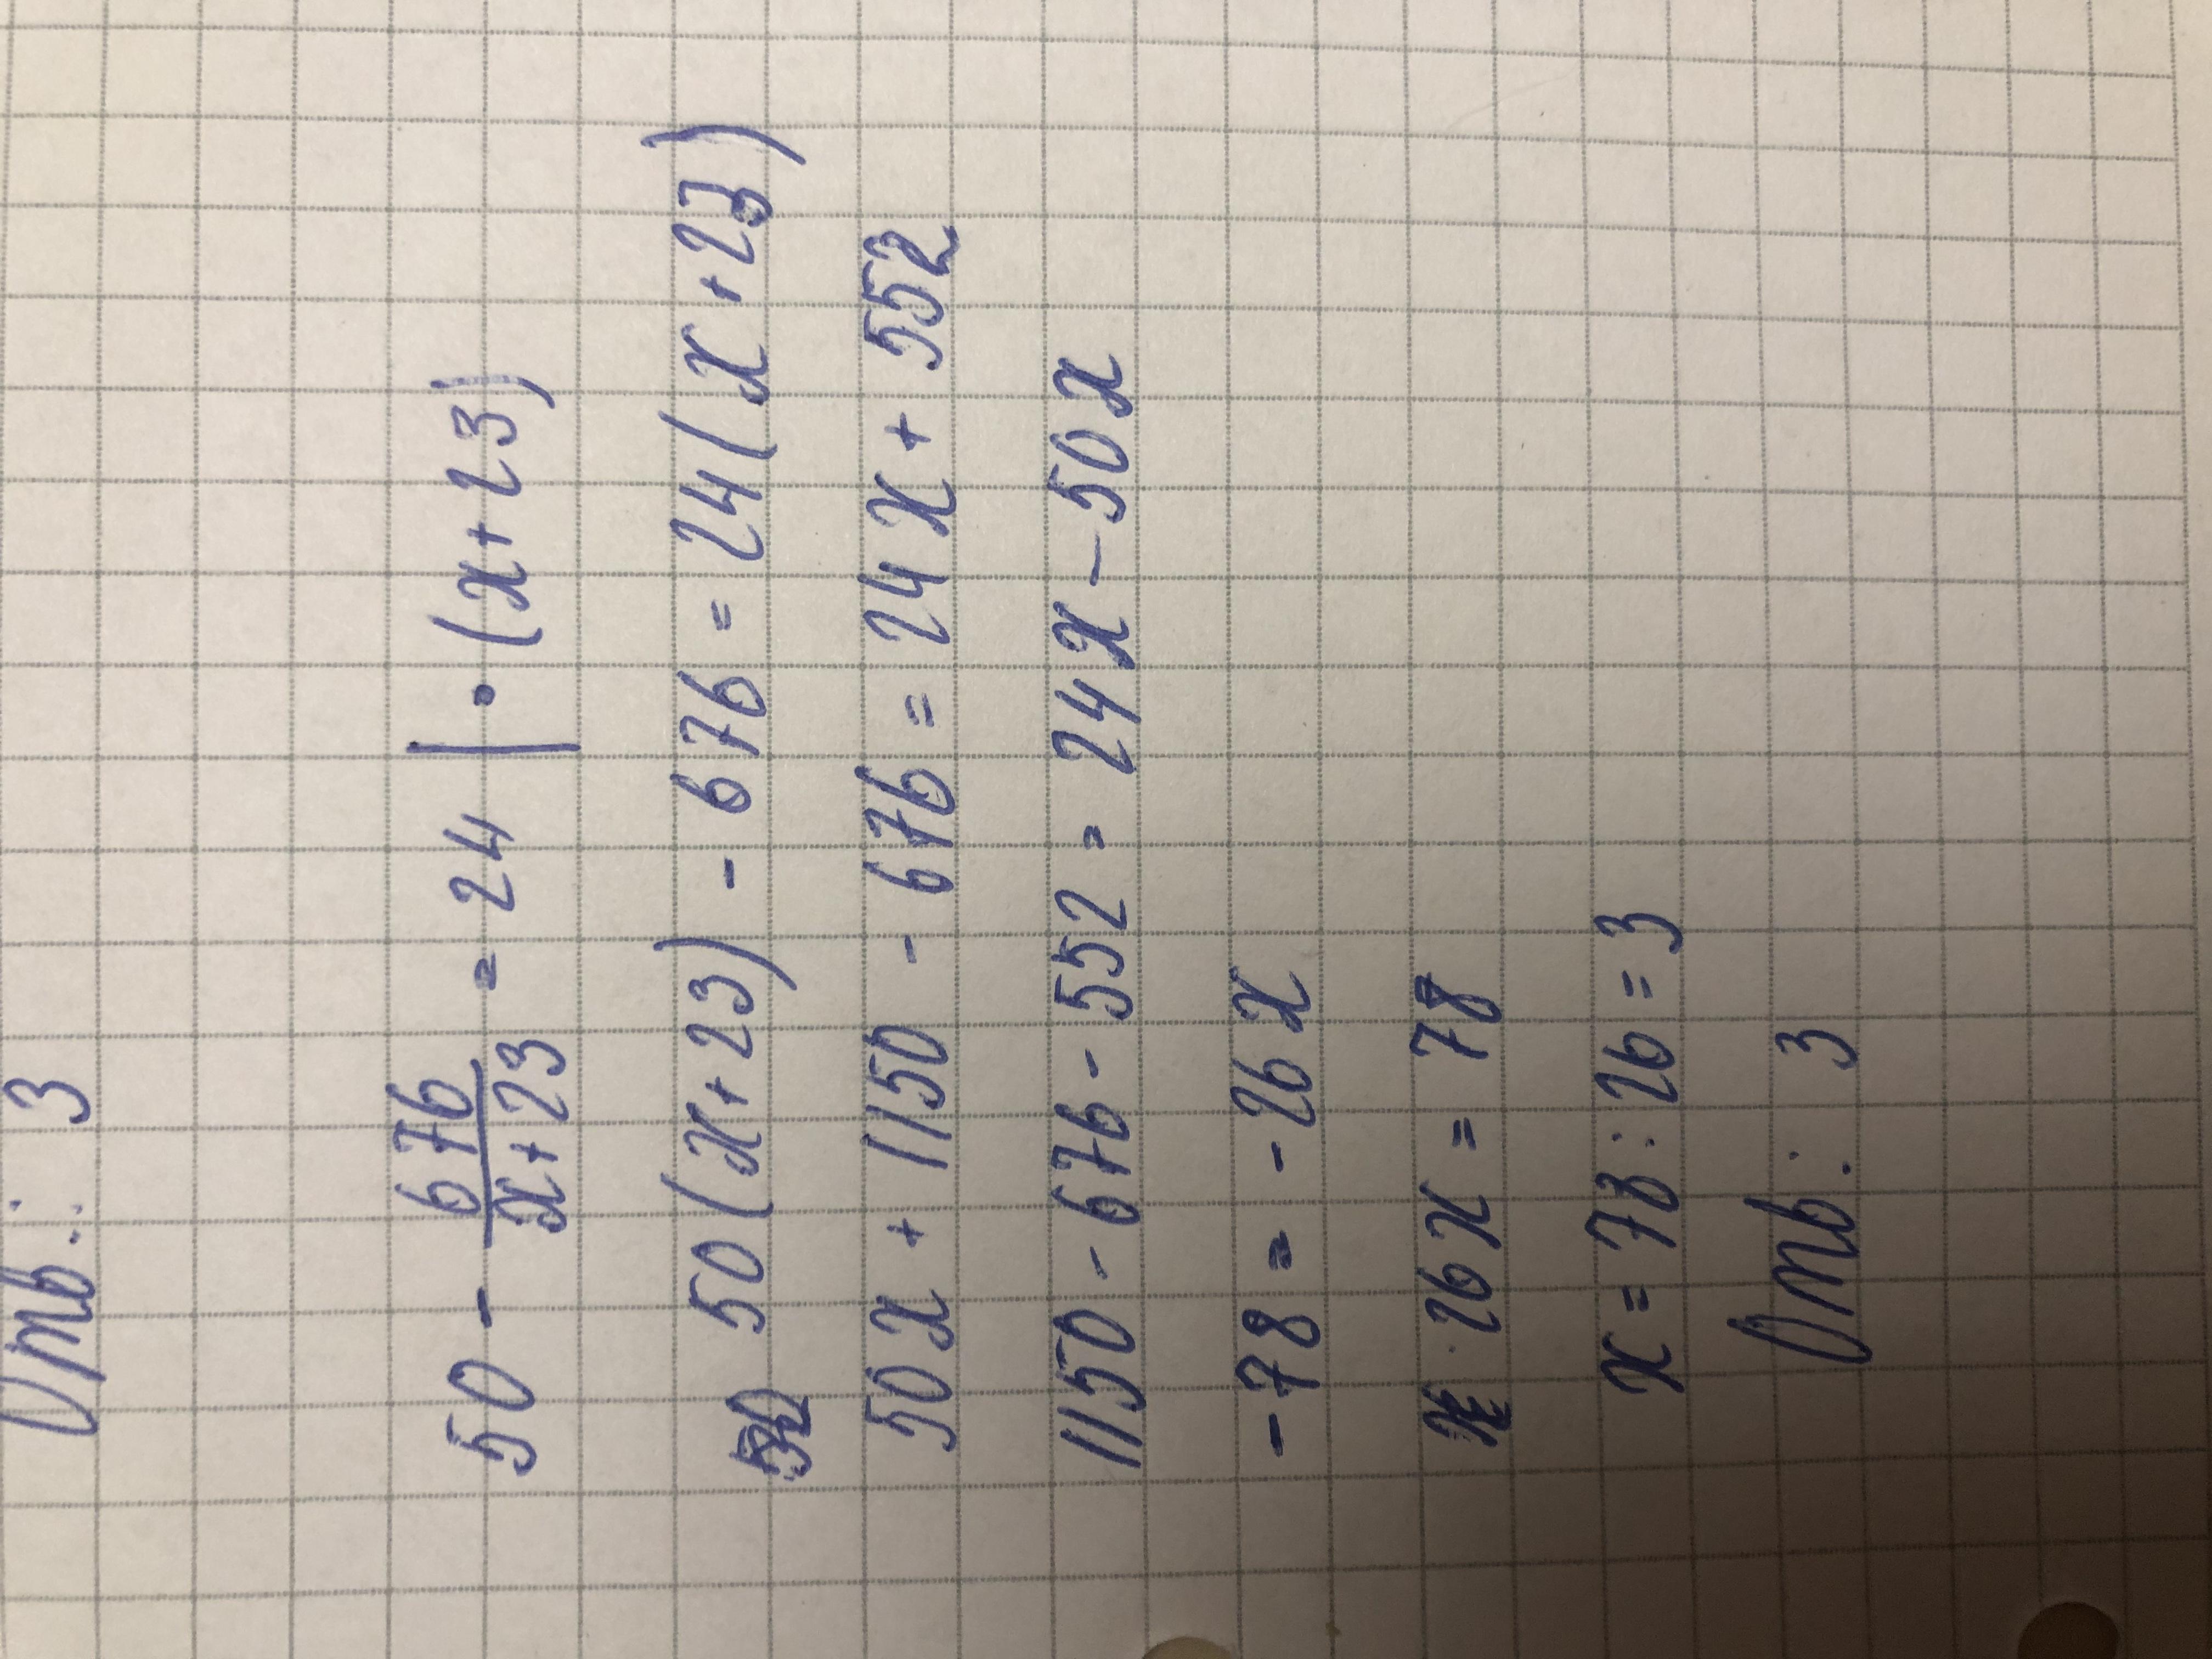 Отв.: 3
50 - 676/(x+23) = 24 | • (x+23)
50(x+23) - 676 = 24(x+23)
50x + 1150 - 676 = 24x + 552
1150 - 676 - 552 = 24x - 50x
-78 = -26x
26x = 78
x = 78 : 26 = 3
Отв: 3